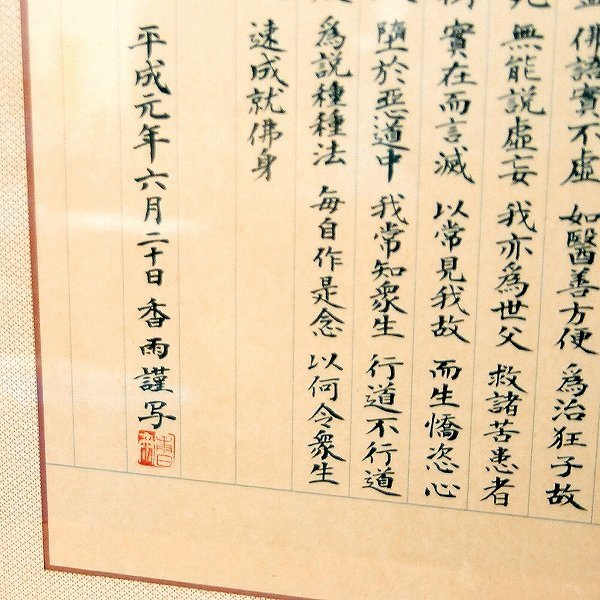 俳語實不虛 如醫善方便 為治狂子故
無能說虛妄 我亦為世父 救諸苦患者
實在而言滅 以常見我故 而生憍恣心
墮於惡道中 我常知衆生 行道不行道
為說種種法 每自作是念 以何令衆生
速成就佛身
平成元年六月二十日 香雨謹写